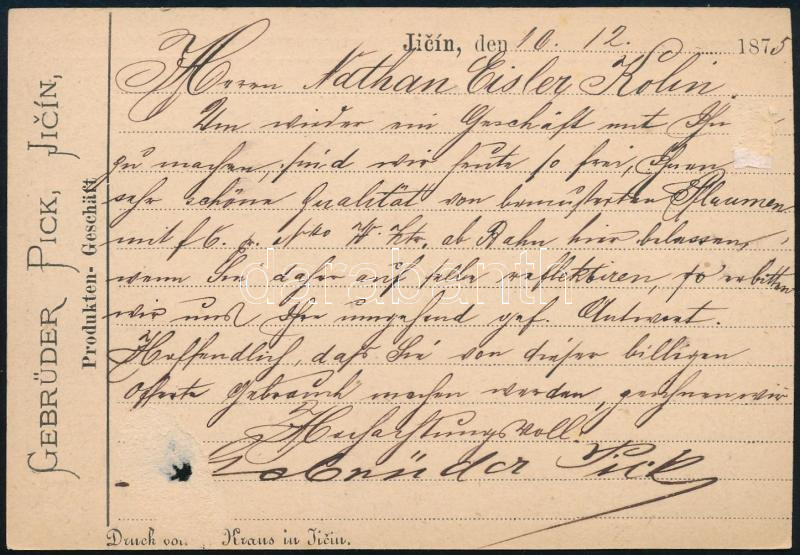 GEBRÜDER PICK, JIČÍN,
Produkten- Geschäft
Jičín, den 10. 12. 1875
Herrn Nathan Eisler Kolin.
Um wieder ein Geschäft mit Ihn
zu machen, sind wir heute so frei, Ihnen
sehr schöne Qualität von bemusterten Pflaumen
mit f 6. p. Ztr. ab Bahn hier belassen,
wenn Sie daher auf selbe reflektiren, so erbitten
wir uns Ihre umgehend gef. Antwort.
Hoffendlich, daß Sie von dieser billigen
Offerte Gebrauch machen werden, zeichnen wir
Hochachtungsvoll
Gebrüder Pick
Druck von Kraus in Jičín.
darabanth